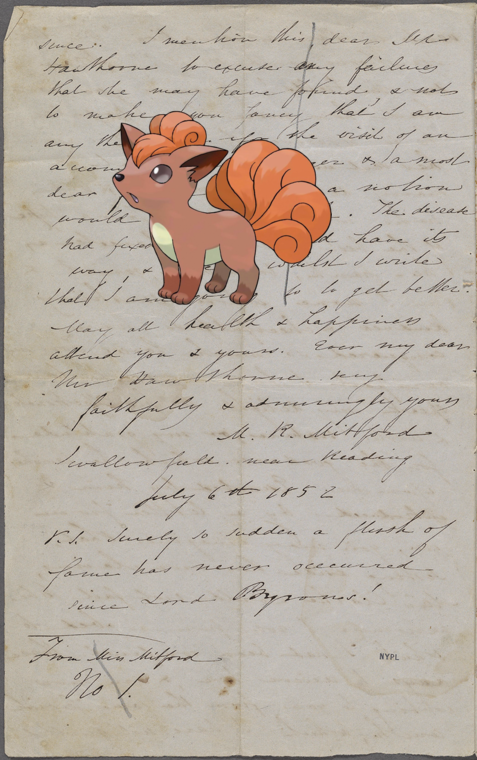 since. I mention this, dear Mr.
Hawthorne to excuse any failures
that she may have found & not
to make you fancy that I am
any the for the visit of an
& a most
dear a notion
would . The disease
had have its
way & whilst I write
that I am to get better.
May all health & happiness
attend you & yours. Ever my dear
Mr Hawthorne very
faithfully & admiringly yours
M. R. Mitford
Swallowfield. near Reading
July 6th 1852
P.S. Surely so sudden a flush of
fame has never occurred
since Lord Byrons!
From Miss Mitford
No 1.
NYPL